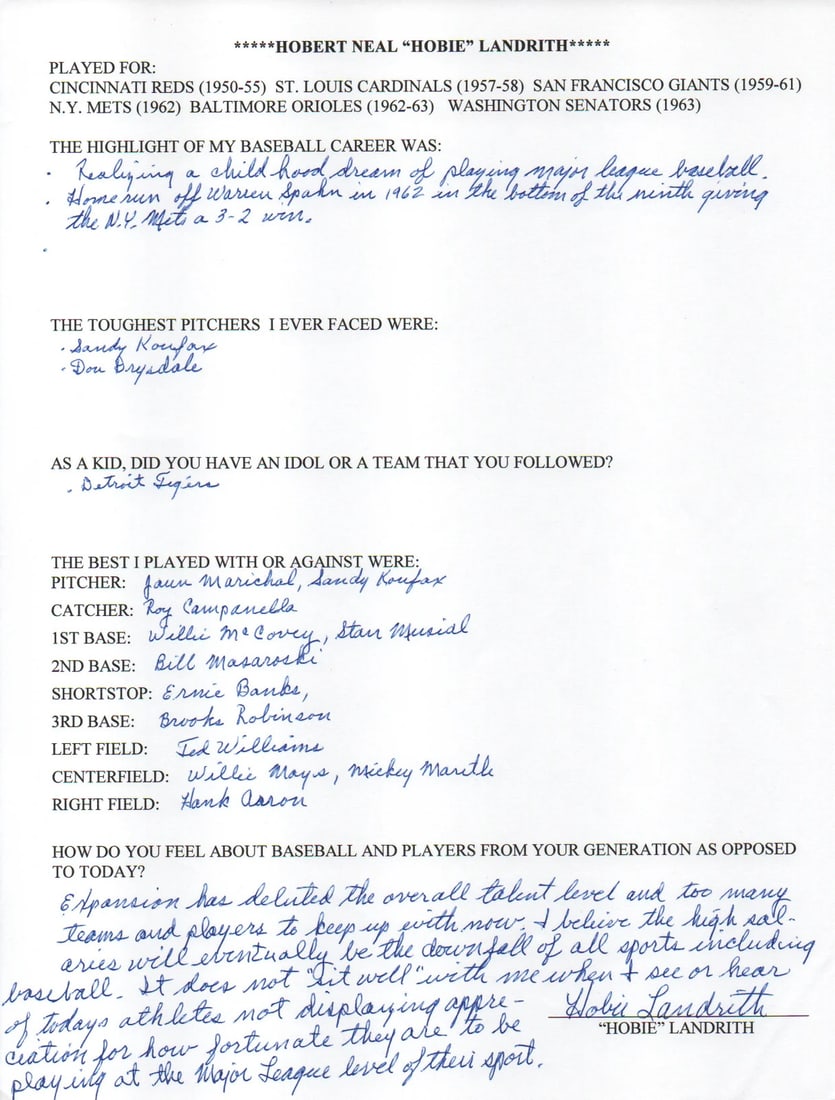 *****HOBERT NEAL “HOBIE” LANDRITH*****
PLAYED FOR:
CINCINNATI REDS (1950-55) ST. LOUIS CARDINALS (1957-58) SAN FRANCISCO GIANTS (1959-61)
N.Y. METS (1962) BALTIMORE ORIOLES (1962-63) WASHINGTON SENATORS (1963)
THE HIGHLIGHT OF MY BASEBALL CAREER WAS:
· Realizing a child hood dream of playing major league baseball.
· Home run off Warren Spahn in 1962 in the bottom of the ninth giving
the N.Y. Mets a 3-2 win.
·
THE TOUGHEST PITCHERS I EVER FACED WERE:
· Sandy Koufax
· Don Drysdale
AS A KID, DID YOU HAVE AN IDOL OR A TEAM THAT YOU FOLLOWED?
· Detroit Tigers
THE BEST I PLAYED WITH OR AGAINST WERE:
PITCHER: Jaun Marichal, Sandy Koufax
CATCHER: Roy Campanella
1ST BASE: Willie McCovey, Stan Musial
2ND BASE: Bill Masaroski
SHORTSTOP: Ernie Banks,
3RD BASE: Brooks Robinson
LEFT FIELD: Ted Williams
CENTERFIELD: Willie Mays, Mickey Mantle
RIGHT FIELD: Hank Aaron
HOW DO YOU FEEL ABOUT BASEBALL AND PLAYERS FROM YOUR GENERATION AS OPPOSED
TO TODAY?
Expansion has deluted the overall talent level and too many
teams and players to keep up with now. I believe the high sal-
aries will eventually be the downfall of all sports including
baseball. It does not "sit well" with me when I see or hear
of todays athletes not displaying appre-
ciation for how fortunate they are to be
playing at the Major League level of their sport.
Hobie Landrith
“HOBIE” LANDRITH